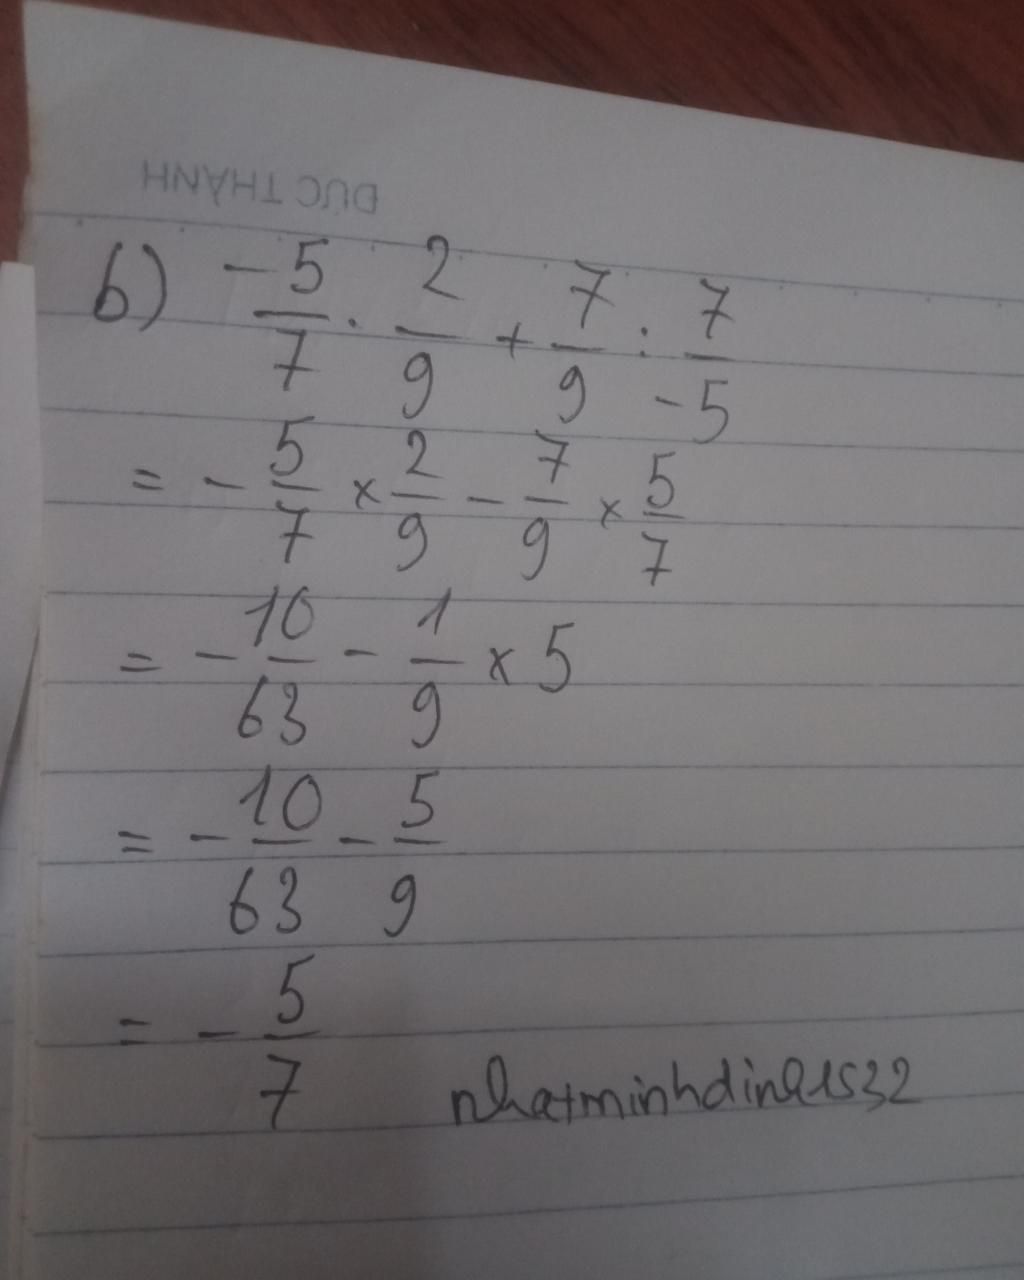 ĐỨC THÀNH
b) -5/7 . 2/9 + 7/9 : 7/-5
= - 5/7 × 2/9 - 7/9 × 5/7
= - 10/63 - 1/9 × 5
= - 10/63 - 5/9
= - 5/7
nhatminhdinh1532